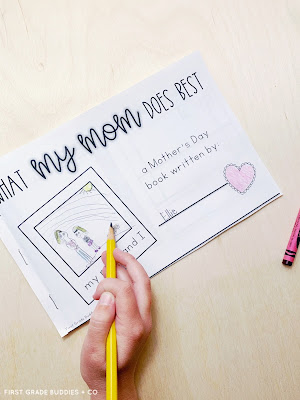 WHAT my mom DOES BEST
a Mother's Day
book written by:
Ellie
my and I
FIRST GRADE BUDDIES + CO